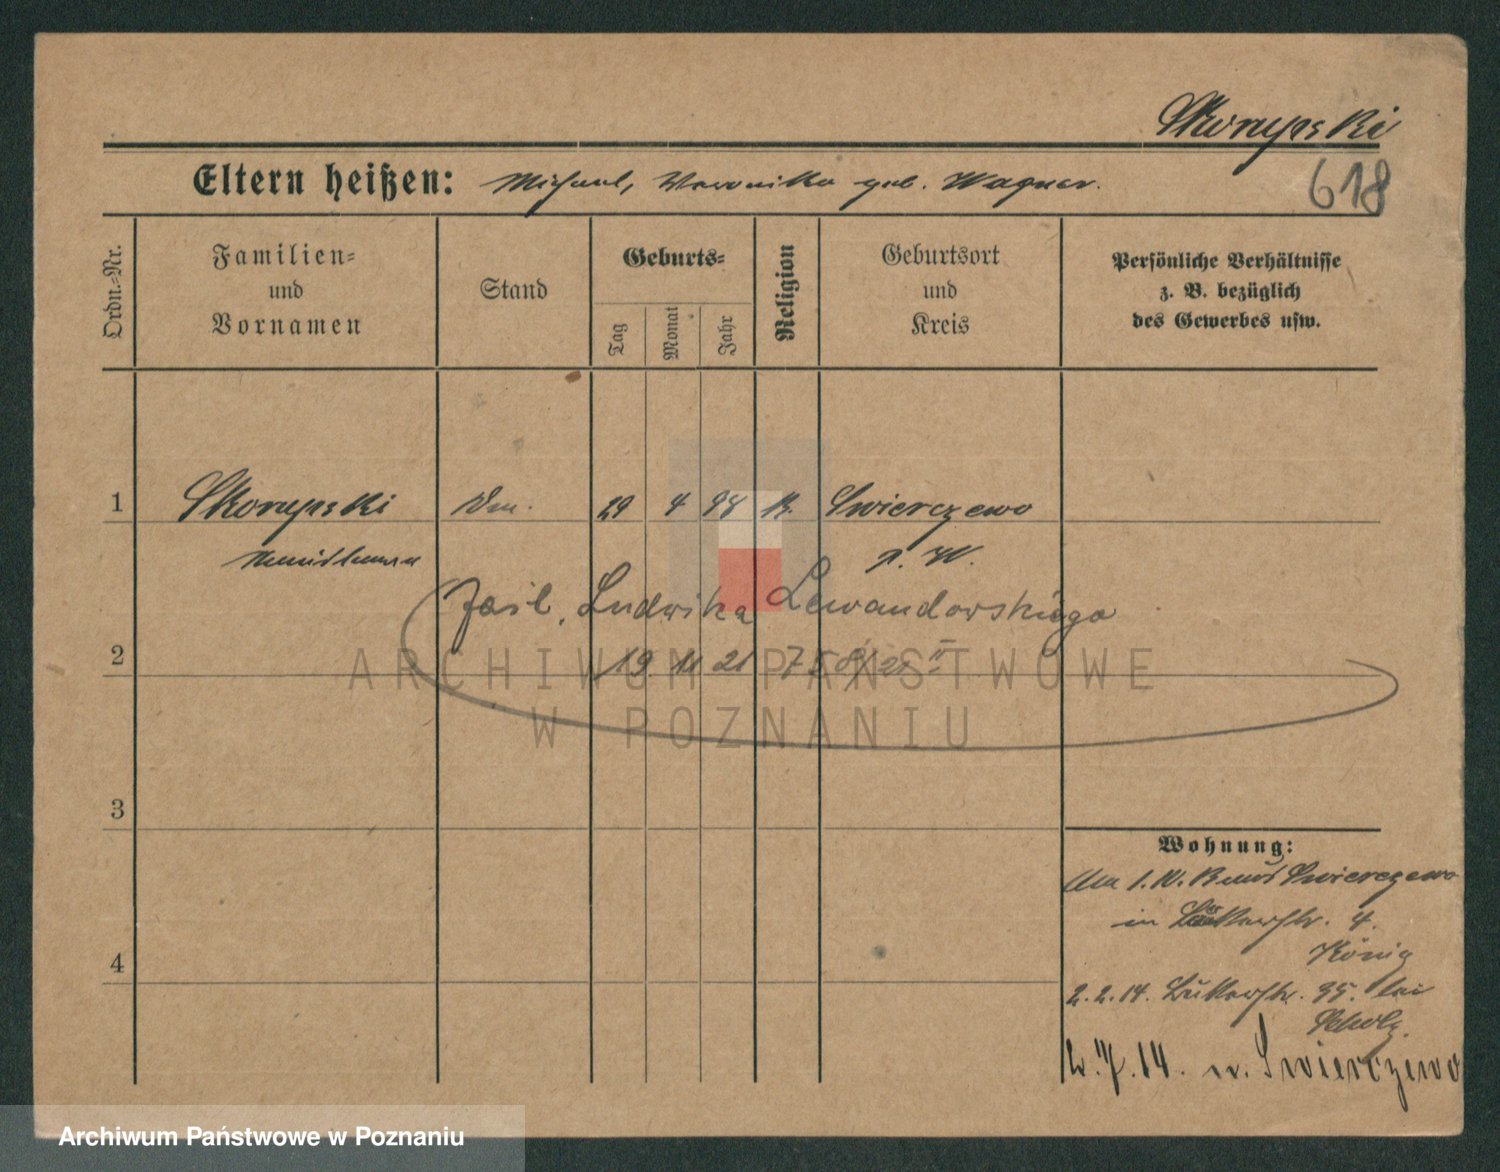 Skorupski
Eltern heißen: Michael, Veronika geb. Wagner.
618
Ordn.-Nr.
Familien-
und
Vornamen
Stand
Geburts-
Tag
Monat
Jahr
Religion
Geburtsort
und
Kreis
Persönliche Verhältnisse
z. B. bezüglich
des Gewerbes usw.
1
Skorupski
29 4 98 K. Swierczewo
P. W.
Ludwika Lewandowskiego
2
19 11 21
3
4
Wohnung:
Swierczewo
in 4.
König
2.2.14. 95. bei
Scholz.
14. n. Swierczewo
ARCHIWUM PAŃSTWOWE
W POZNANIU
Archiwum Państwowe w Poznaniu